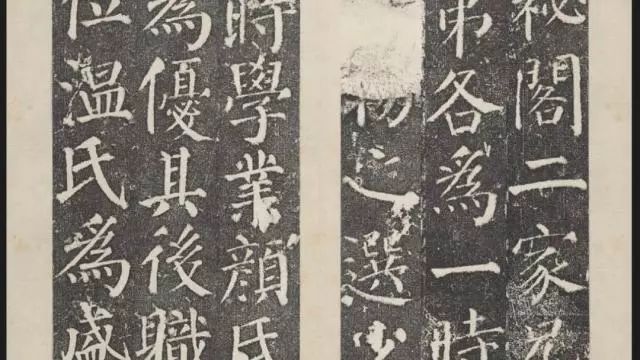 秘閣二家兄
弟各爲一時
物之選少
時學業顏氏
爲優其後職
位温氏爲盛